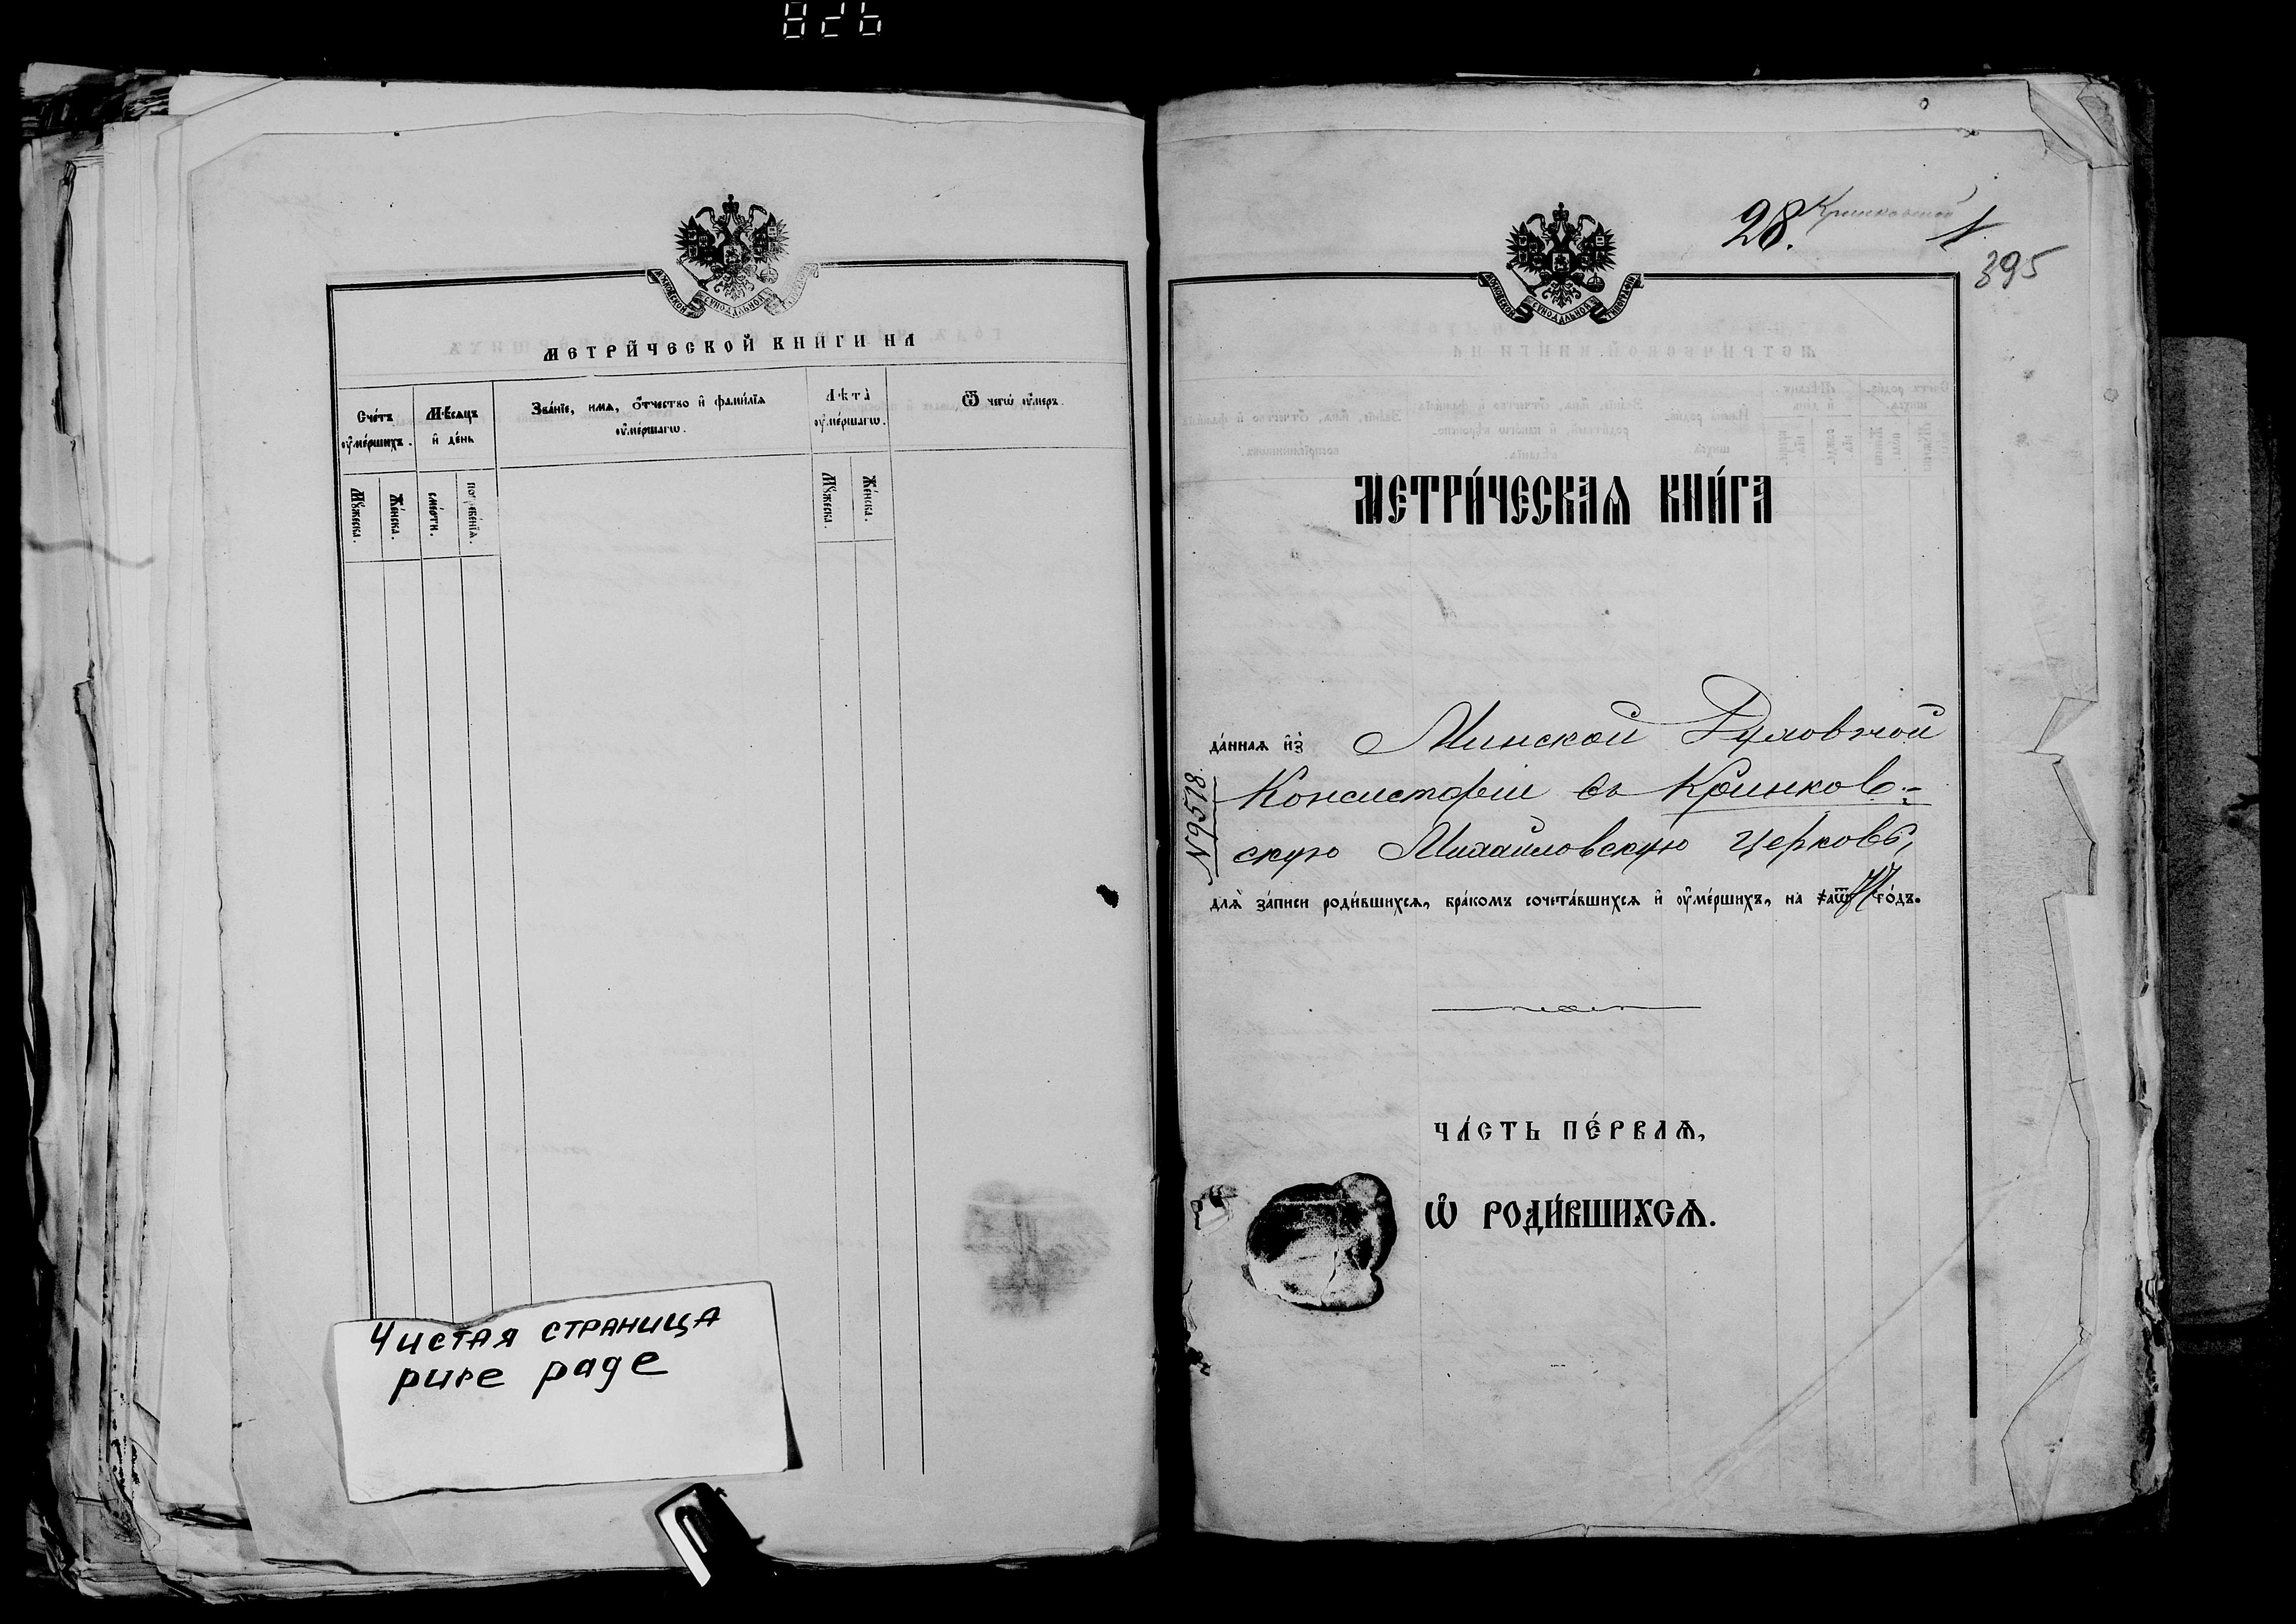 826
МОСКОВСКОЙ СѴНОДАЛЬНОЙ ТИПОГРАФІИ
МЕТРИ́ЧЕСКОЙ КНИ́ГИ НА
Сче́тъ ᲂу҆ме́ршихъ.
Мѣ́сяцъ и҆ де́нь
Зва́нїе, имѧ, ѻ҆́тчество и҆ фами́лїѧ ᲂу҆ме́ршагѡ.
Лѣ́та ᲂу҆ме́ршагѡ.
Ѿ чегѡ̀ ᲂу҆́меръ.
Мꙋ́жеска.
Же́нска.
сме́рти.
погребе́нїѧ.
Мꙋ́жеска.
Же́нска.
Чистая страница
pure page
28. Кринковской 1.
395
МОСКОВСКОЙ СѴНОДАЛЬНОЙ ТИПОГРАФІИ
МЕТРИ́ЧЕСКАѦ КНИ́ГА
да́ннаѧ и҆з̾ Минской Духовной
Консисторіи въ Кринков-
скую Михаиловскую церковь,
№9518.
длѧ̀ за́писи роди́вшихсѧ, бра́комъ сочета́вшихсѧ и҆ ᲂу҆ме́ршихъ, на ҂аѿ77 го́дъ.
ЧА́СТЬ ПЕ́РВАѦ,
Ѡ҆ РОДИ́ВШИХСѦ.